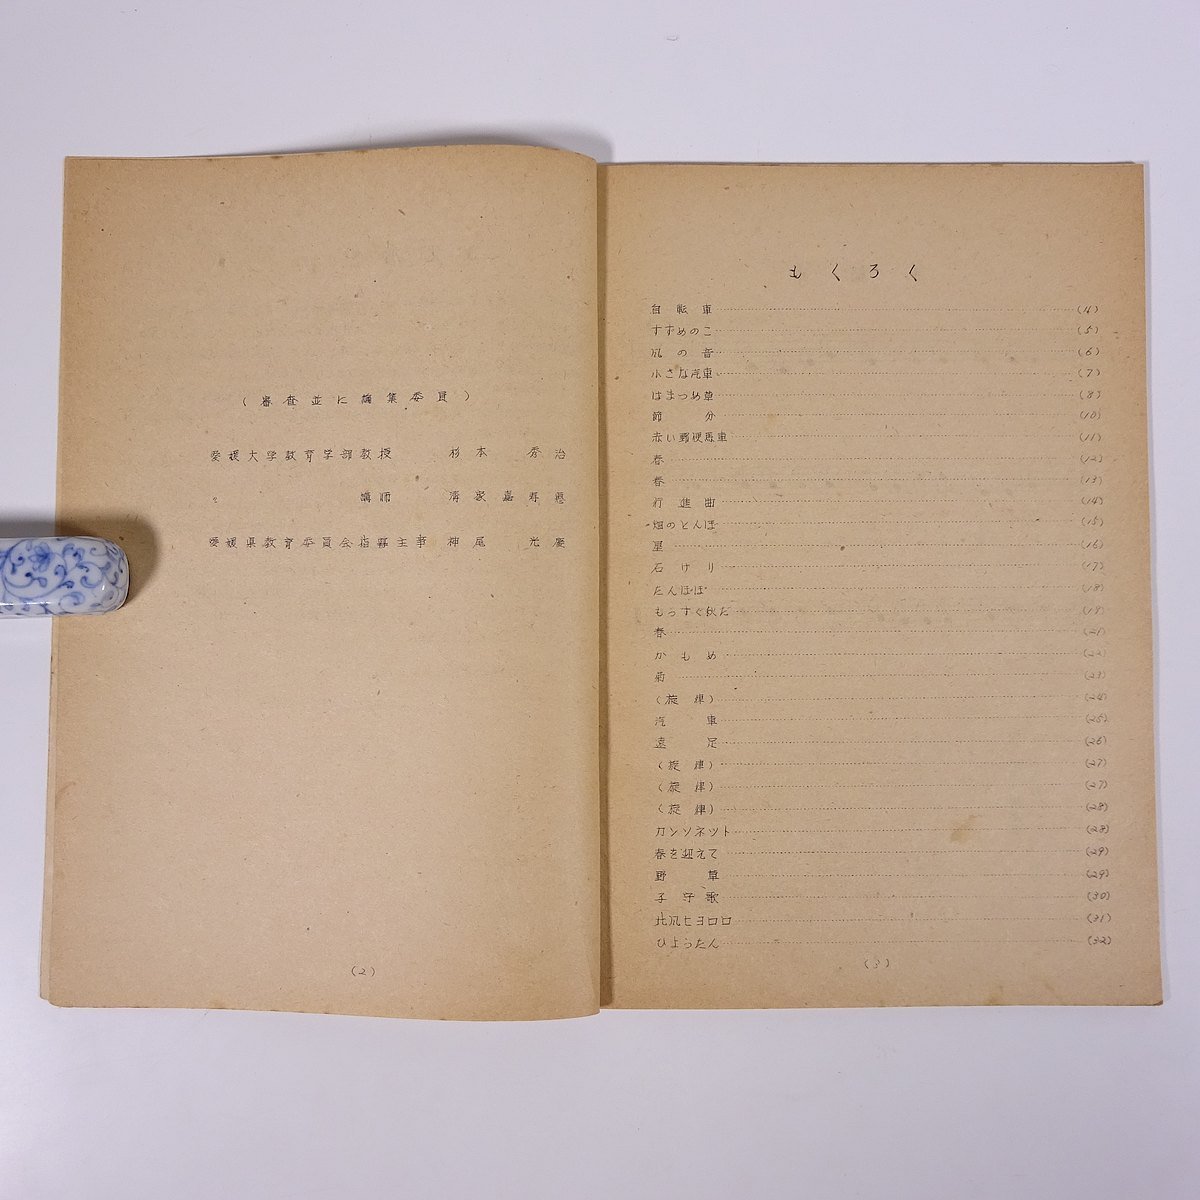 (審査並に編集委員)
愛媛大学教育学部教授 杉本 秀治
〃 講師 清家嘉寿恵
愛媛県教育委員会指導主事 神尾 光慶
(2)
もくろく
自転車……(4)
すずめのこ……(5)
風の音……(6)
小さな汽車……(7)
はまつめ草……(8)
節分……(10)
赤い郵便馬車……(11)
春……(12)
春……(13)
行進曲……(14)
畑のとんぼ……(15)
星……(16)
石けり……(17)
たんぽぽ……(18)
もうすぐ秋だ……(19)
春……(21)
かもめ……(22)
菊……(23)
(旋律)……(24)
汽車……(25)
遠足……(26)
(旋律)……(27)
(旋律)……(27)
(旋律)……(28)
カンソネツト……(28)
春を迎えて……(29)
野草……(29)
子守歌……(30)
北風ヒヨロロ……(31)
ひようたん……(32)
(3)